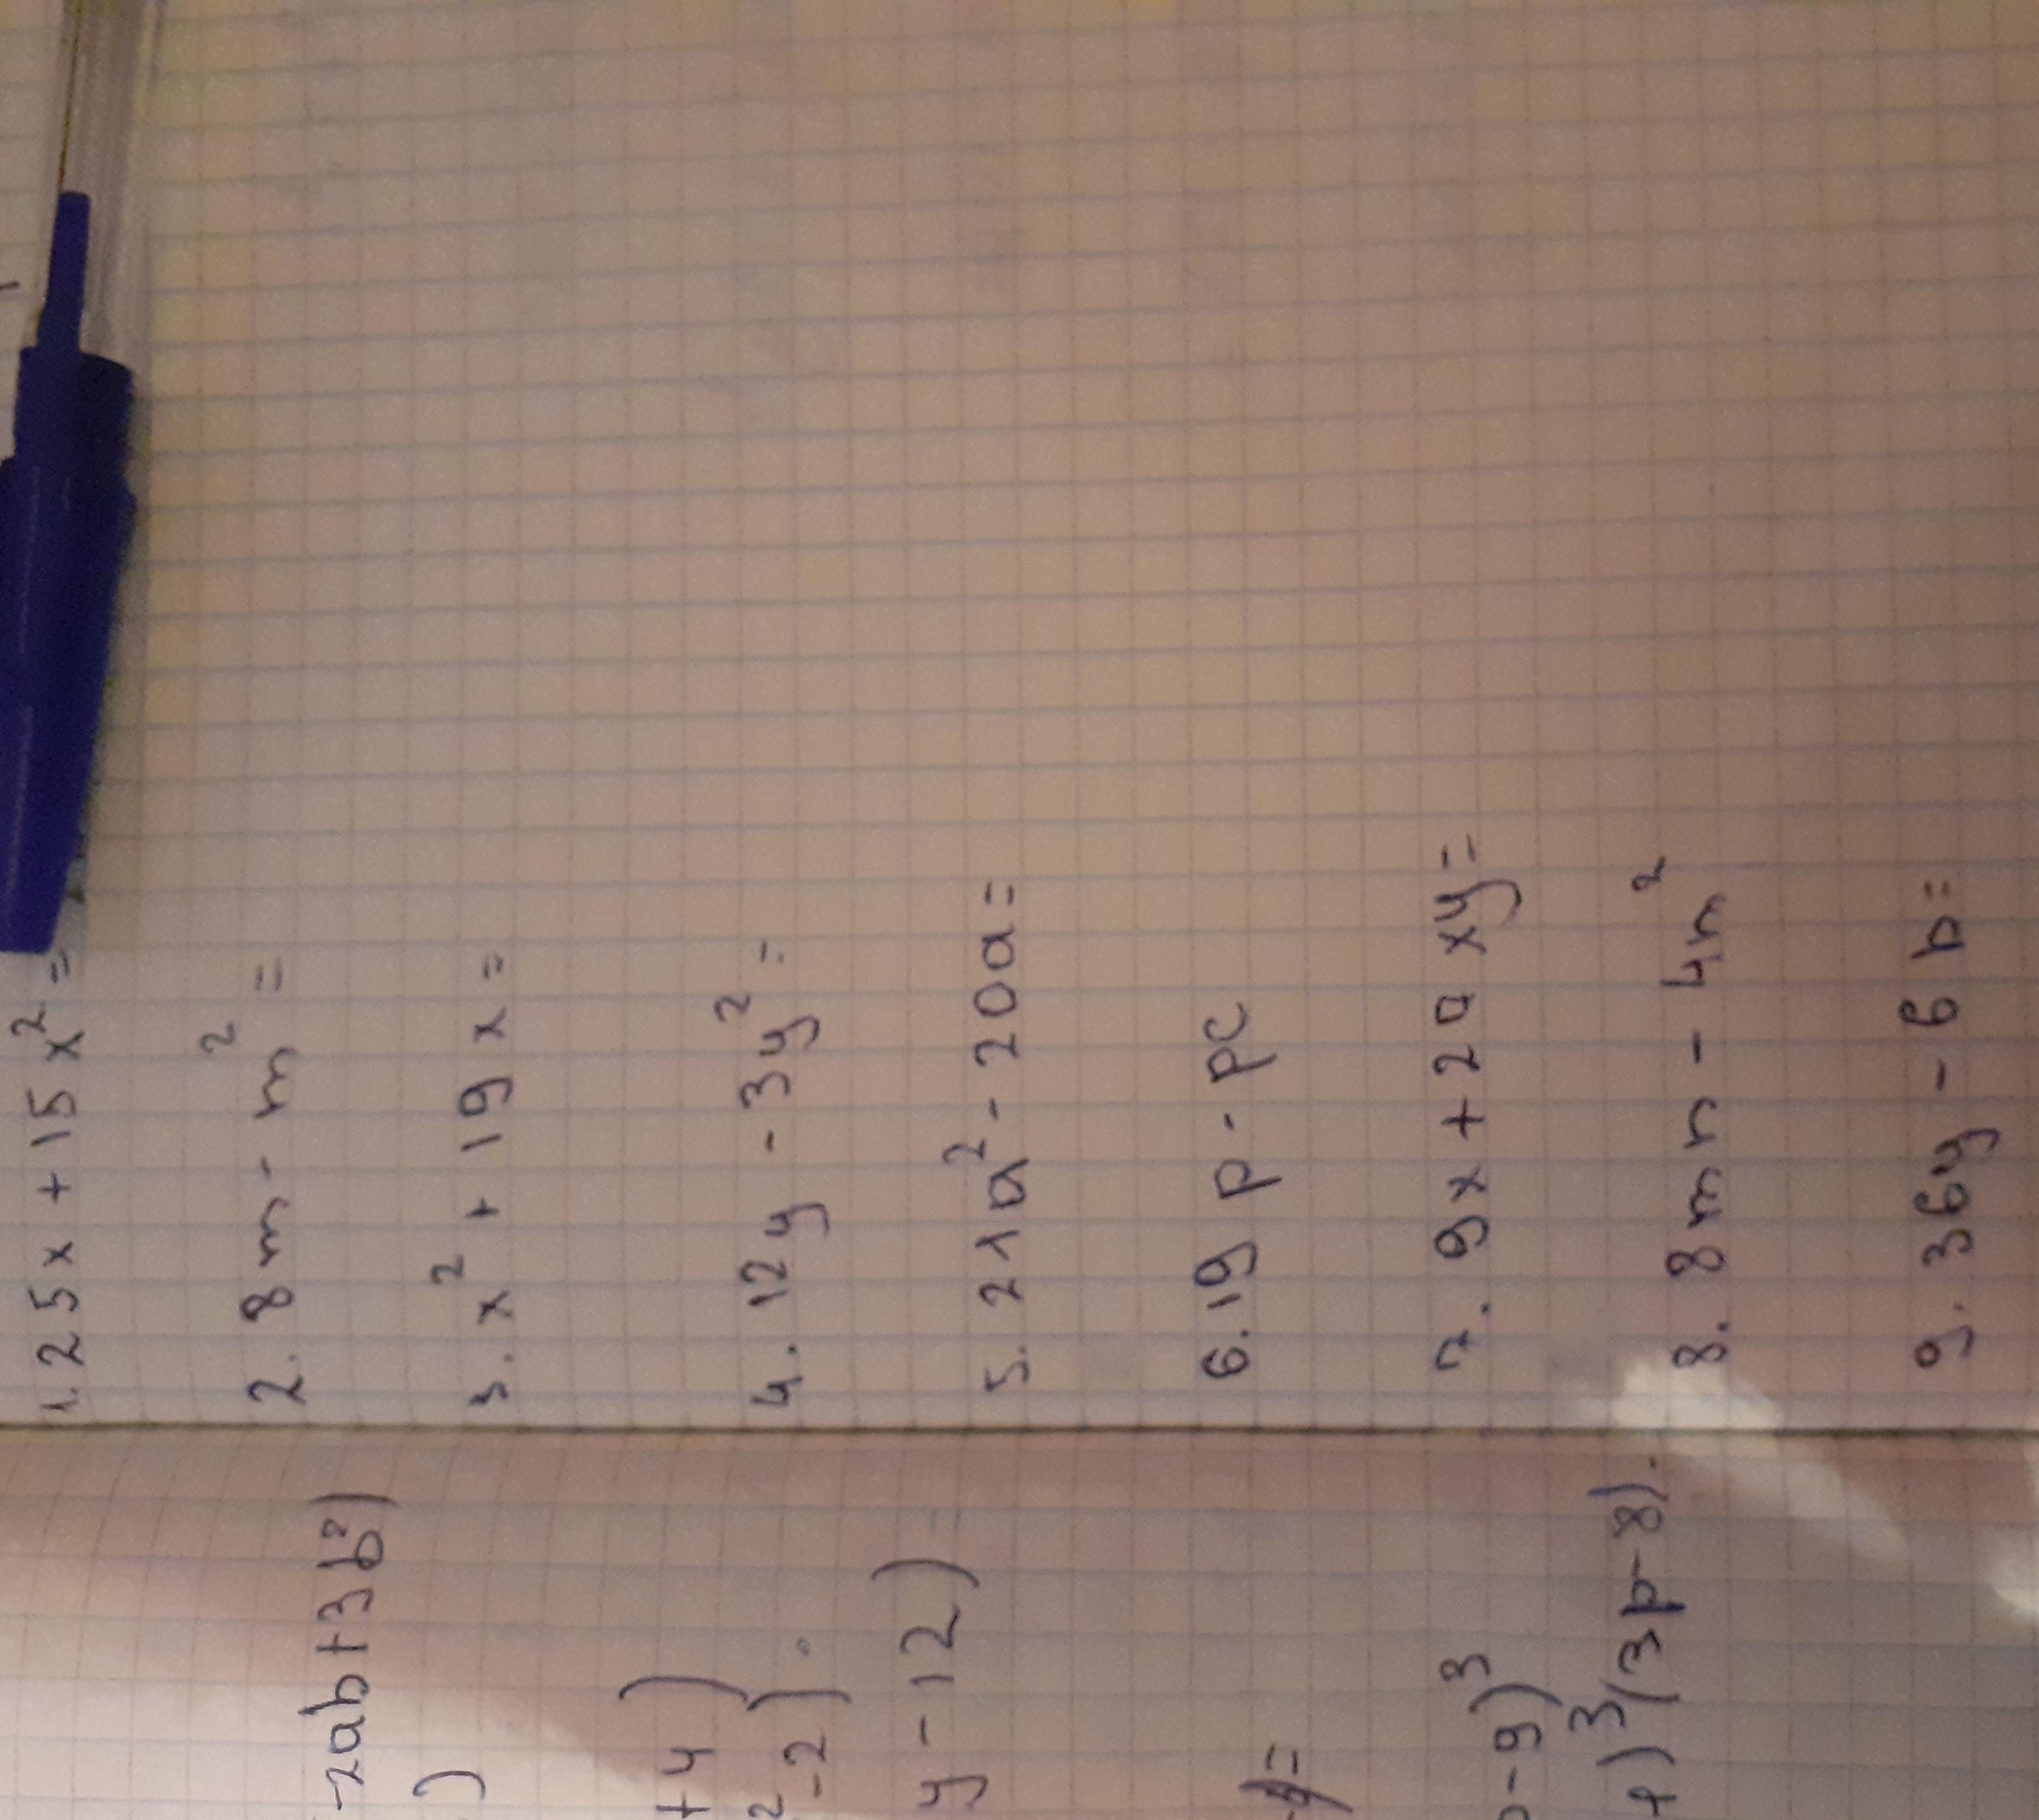 1. 25x + 15x² =
2. 8m - m² =
3. x² + 19x =
4. 12y - 3y² =
5. 21a² - 20a =
6. 19p - pc
7. 9x + 2axy =
8. 8mn - 4n²
9. 36y - 6b =
-2ab+3b²)
)
+4)
²-2).
y-12)=
=
-9)³
)³(3p-8).